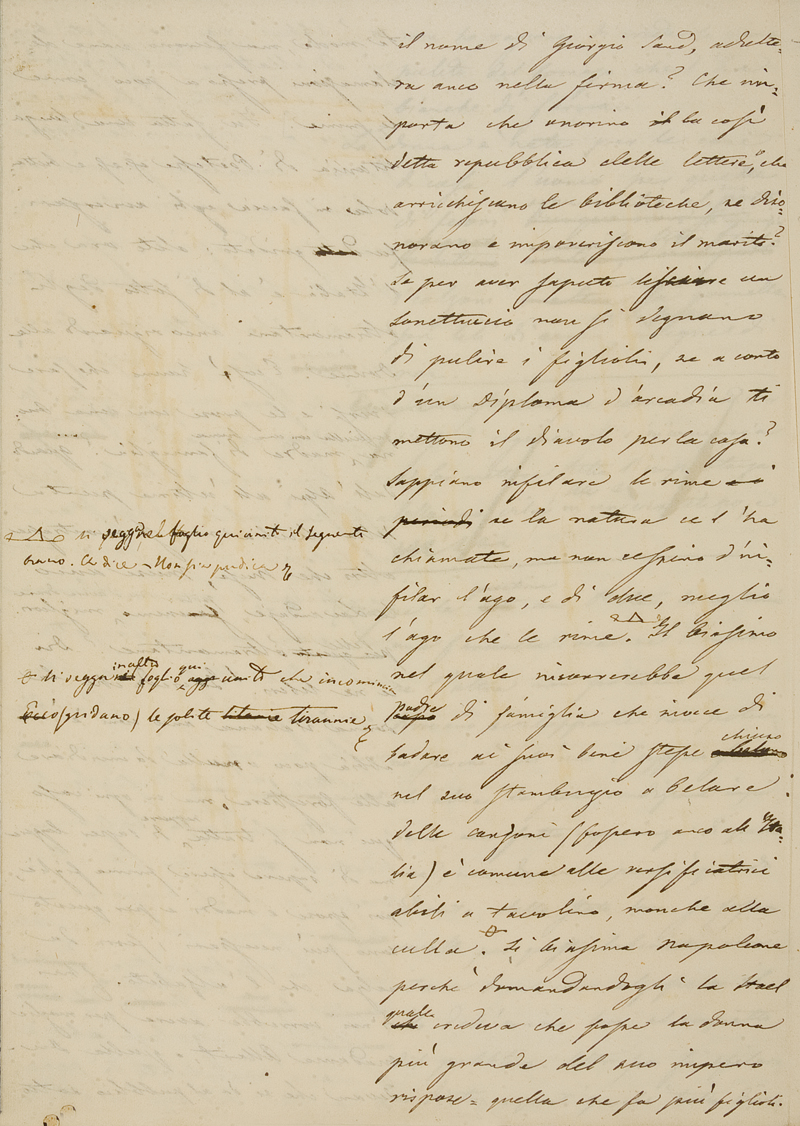 il nome di Giorgio Sand, adulte-
ra anco nella firma? Che im-
porta che onorino il la così
detta repubblica delle lettere, che
arricchiscano le biblioteche, se diso-
norano e impoveriscono il marito?
Se per aver saputo lisciare un
sonettuccio non si degnano
di pulire i figlioli, se a conto
d'un Diploma d'arcadia ti
mettono il diavolo per la casa?
Sappiano infilare le rime e i
periodi se la natura ce l'ha
chiamate, ma non cessino d'in-
filar l'ago, e di due, meglio
l'ago che le rime. Il biasimo
nel quale incorrerebbe quel
padre di famiglia che invece di
badare ai suoi beni stesse chiuso
nel suo stambugio a belare
delle canzoni (fossero anco all'Ita-
lia) è comune alle versificatrici
abili a tavolino, monche alla
culla. Si biasima Napoleone
perchè domandandogli la Stael
quale credeva che fosse la donna
più grande del suo impero
rispose = quella che fa più figlioli.
si segga nel foglio qui unito il seguente
brano. Ce dice = Non sia pudica
si segga in altro foglio qui unito che incomincia
(gridano) le solite litanie tirannie